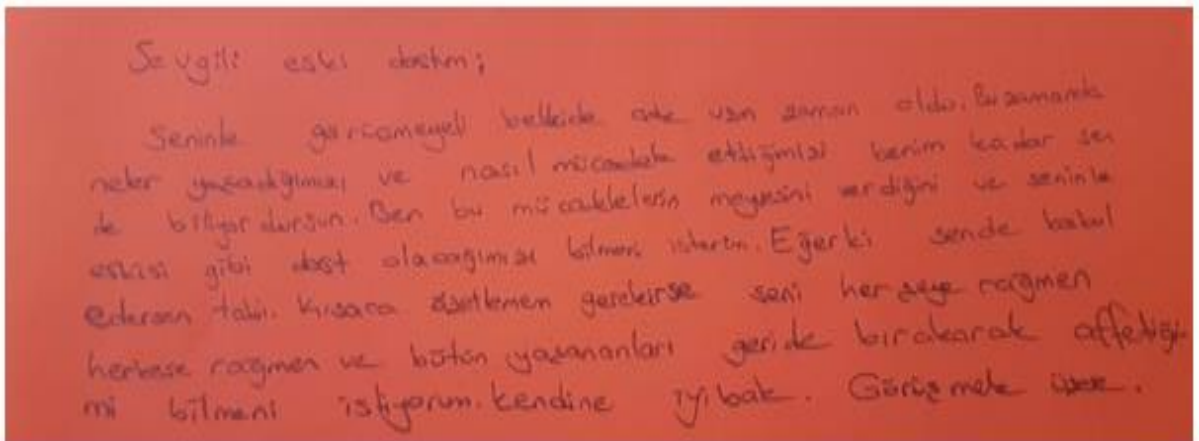 Sevgili eski dostum;
Seninle görüşmeyeli belkide çok uzun zaman oldu. Bu zamanda
neler yaşadığımızı ve nasıl mücadele ettiğimizi benim kadar sen
de biliyordursun. Ben bu mücadelelerin meyvesini verdiğini ve seninle
eskisi gibi dost olacağımızı bilmeni isterim. Eğerki sende kabul
edersen tabi. Kısaca özetlemem gerekirse seni herşeye rağmen
herkese rağmen ve bütün yaşananları geride bırakarak affettiği-
mi bilmeni istiyorum. Kendine iyibak. Görüşmek üzere.